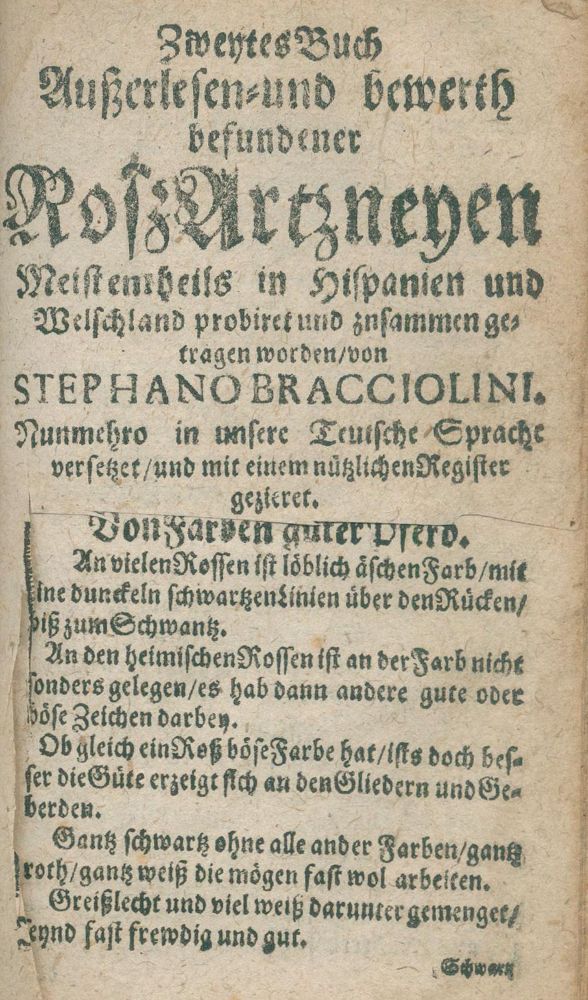 Zweytes Buch
Außerlesen-und bewerth
befundener
Rosz Artzneyen
Meistentheils in Hispanien und
Welschland probiret und zusammen ge-
tragen worden/von
STEPHANO BRACCIOLINI.
Nunmehro in unsere Teutsche Sprache
versetzet/und mit einem nützlichen Register
gezieret.
Von Farben guter Pferd.
An vielen Rossen ist löblich äschen Farb/mit
eine dunckeln schwartzen Linien über den Rücken/
biß zum Schwantz.
An den heimischen Rossen ist an der Farb nicht
sonders gelegen/es hab dann andere gute oder
böse Zeichen darbey.
Ob gleich ein Roß böse Farbe hat/ists doch bes-
ser die Güte erzeigt sich an den Gliedern und Ge-
berden.
Gantz schwartz ohne alle ander Farben/gantz
roth/gantz weiß die mögen fast wol arbeiten.
Greißlecht und viel weiß darunter gemenget/
seynd fast frewdig und gut.
Schwartz